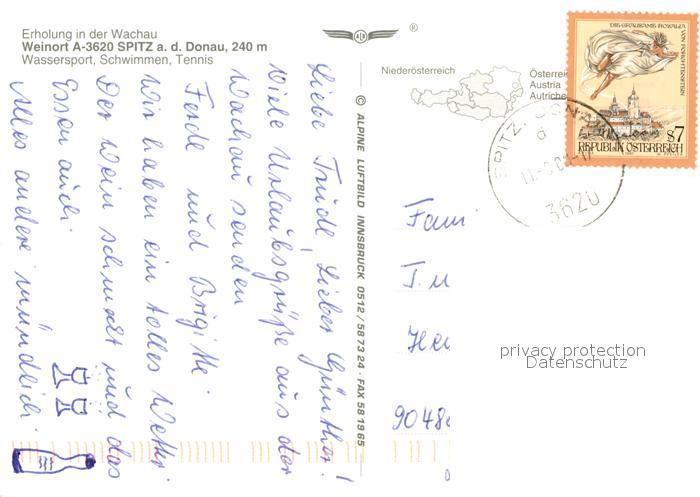 Erholung in der Wachau
Weinort A-3620 SPITZ a. d. Donau, 240 m
Wassersport, Schwimmen, Tennis
®
Niederösterreich
Österrei
Austria
Autriche
DIE GRAUSAME ROSALIA
VON FORCHTENSTEIN
S7
REPUBLIK ÖSTERREICH
SPITZ
3620
© ALPINE LUFTBILD INNSBRUCK 0512 / 58 73 24 · FAX 58 19 65
Liebe Trudl, Lieber Günther!
Viele Urlaubsgrüße aus der
Wachau senden
und Brigitte.
Wir haben ein tolles Wetter.
Der Wein schmeckt und das
Essen auch.
Alles andere mündlich.
Fam
9048
privacy protection
Datenschutz